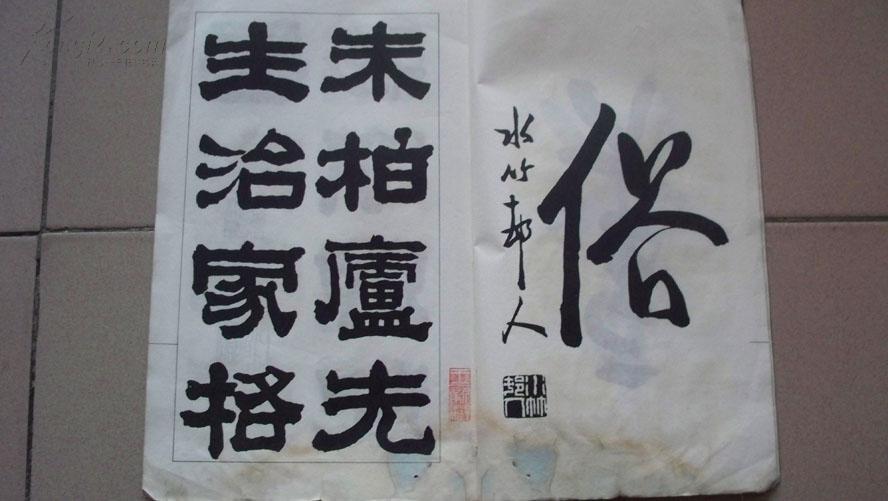 俗
水竹邨人
朱柏廬先
生治家格